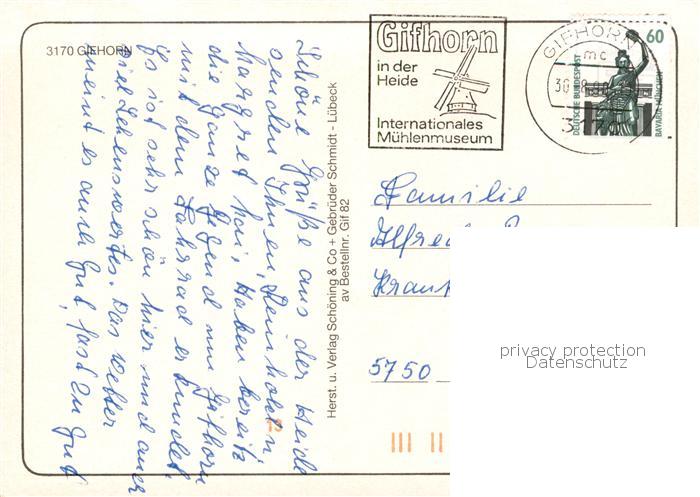 3170 GIFHORN
Gifhorn
in der
Heide
Internationales
Mühlenmuseum
GIFHORN
mc
3170
60
DEUTSCHE BUNDESPOST
BAVARIA MÜNCHEN
Schöne Grüße aus der Heide
senden Ihnen, Reinhold u.
Haben bereits
die ganze Gegend um Gifhorn
mit dem Fahrrad erkundet.
Es ist sehr schön hier und auch
viel Sehenswertes. Das Wetter
meint es auch gut, fast zu gut
Herst. u. Verlag Schöning & Co + Gebrüder Schmidt - Lübeck
av Bestellnr. Gif 82
Familie
5750
privacy protection
Datenschutz